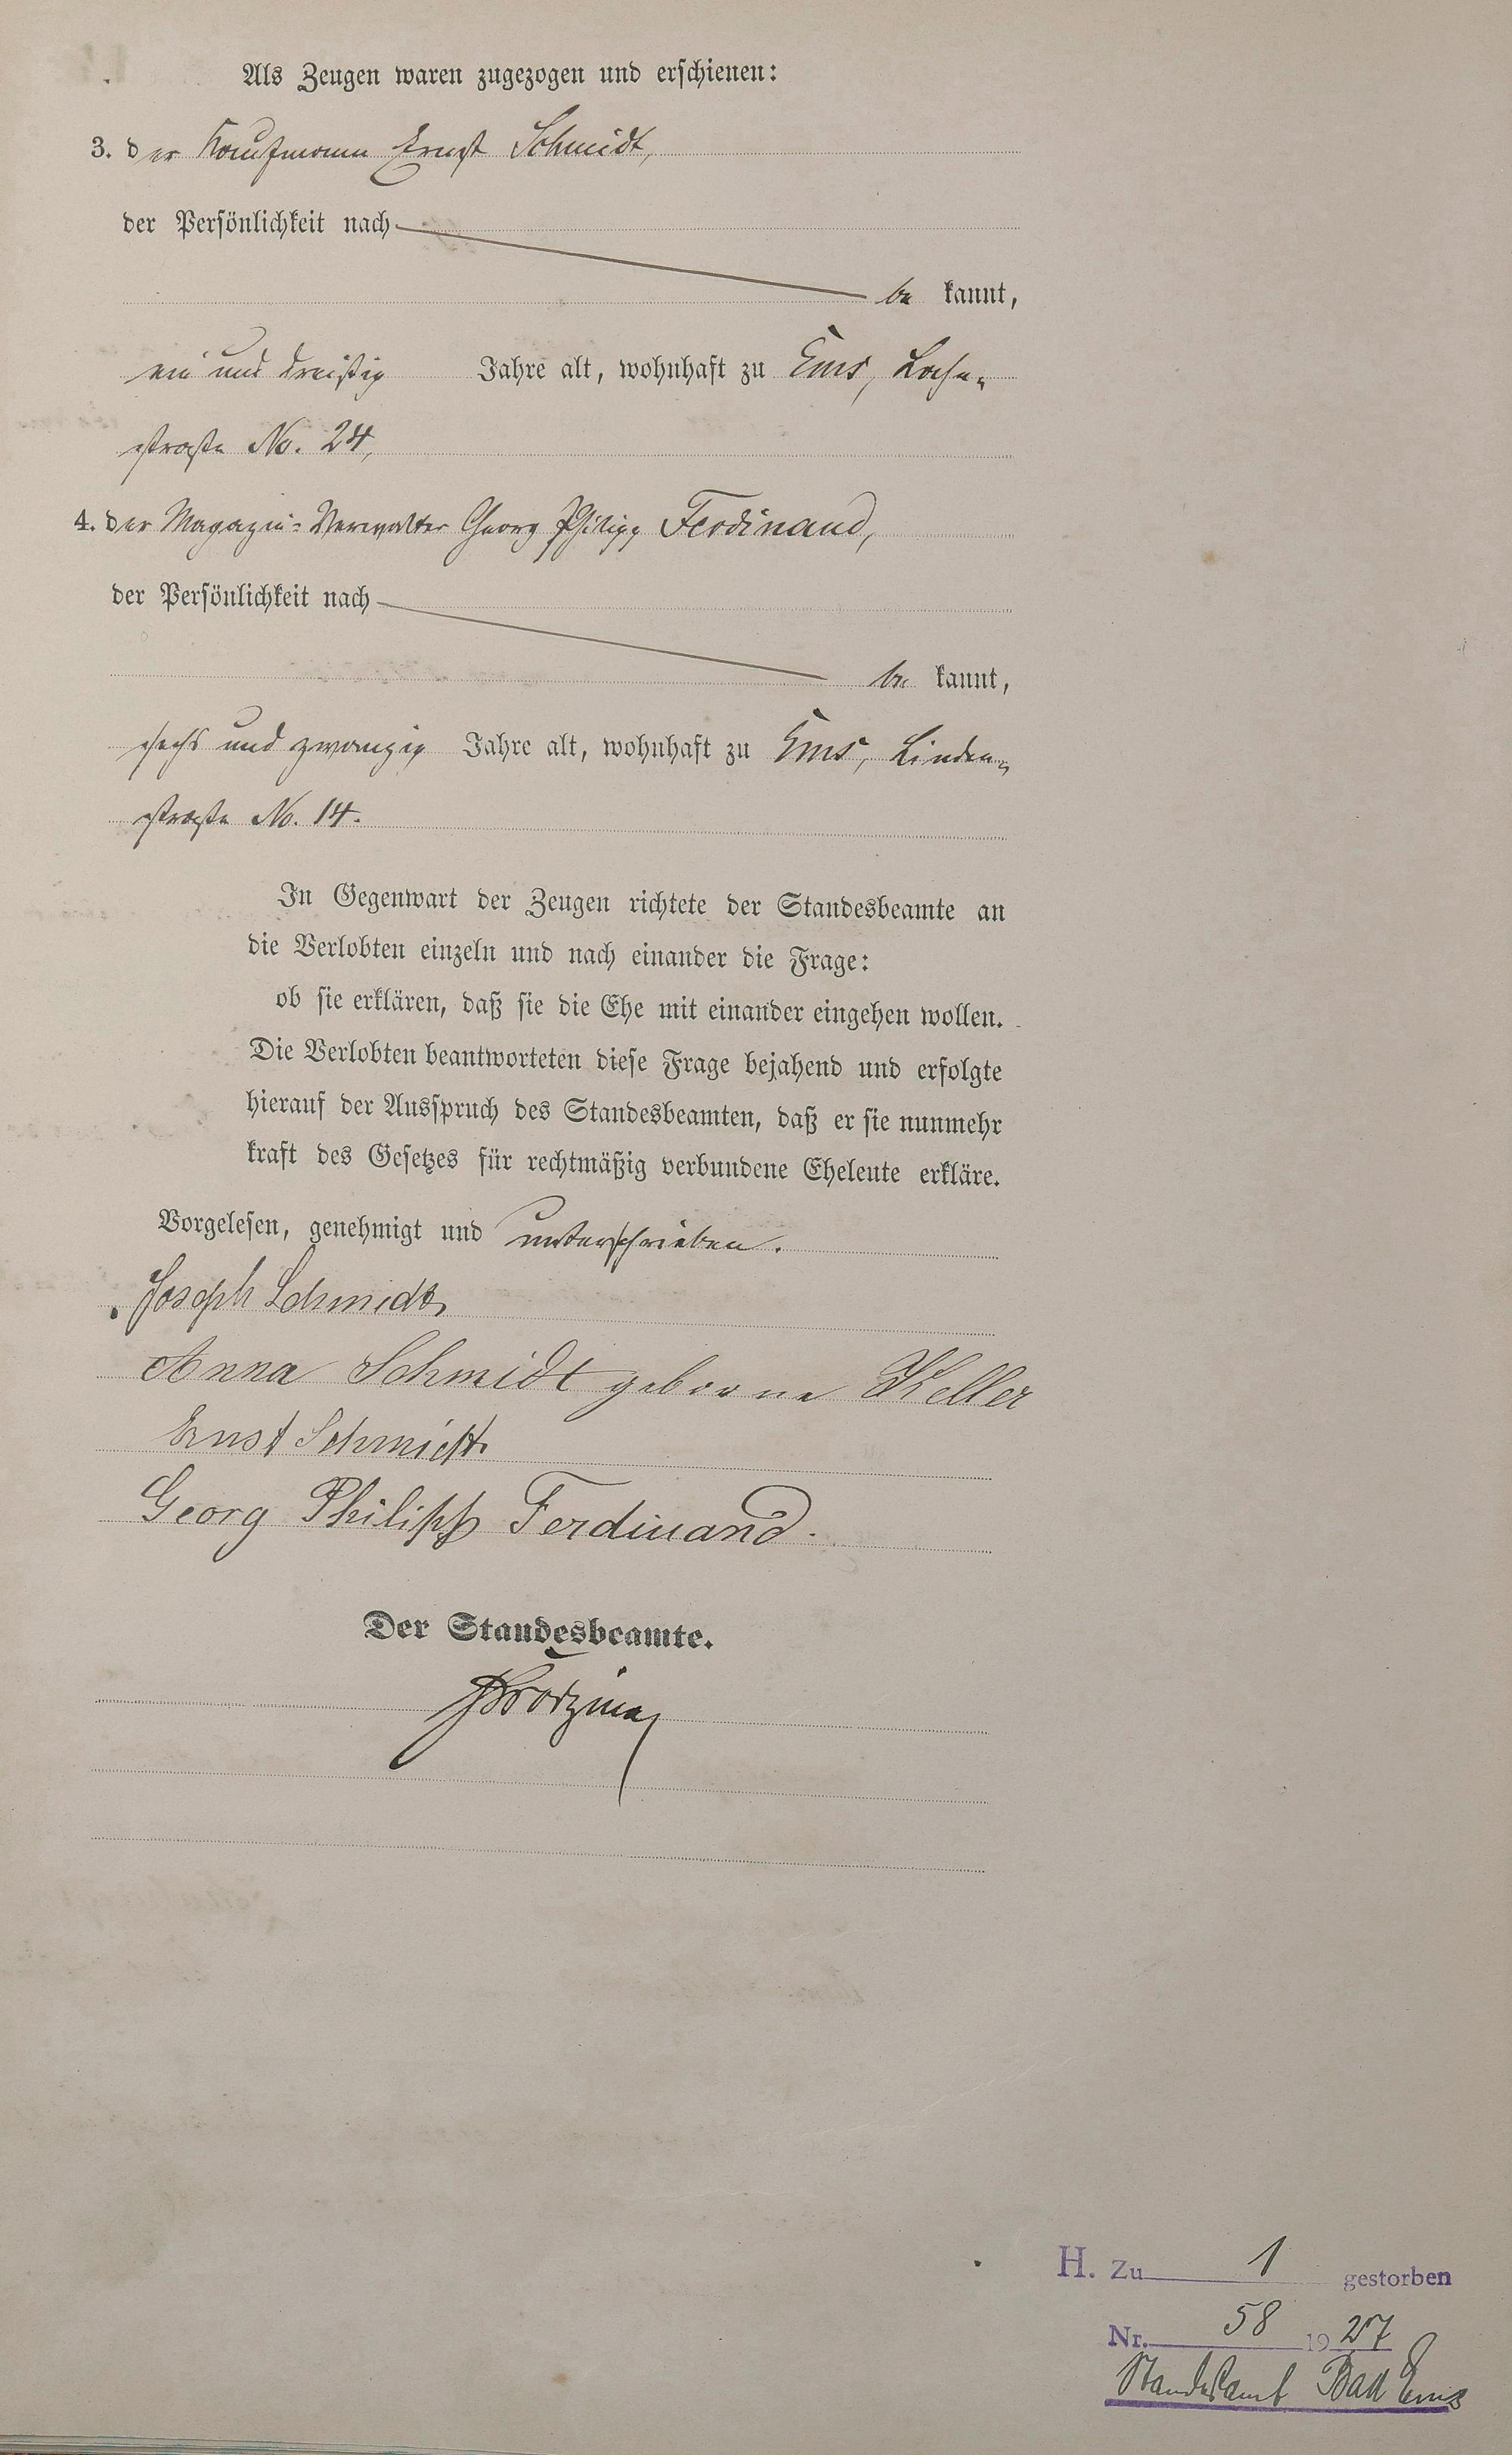 Als Zeugen waren zugezogen und erschienen:
3. der Kaufmann Ernst Schmidt,
der Persönlichkeit nach
be kannt,
ein und dreißig Jahre alt, wohnhaft zu Ems, Lahn-
straße No. 24,
4. der Magazin-Verwalter Georg Philipp Ferdinand,
der Persönlichkeit nach
be kannt,
sechs und zwanzig Jahre alt, wohnhaft zu Ems, Linden-
straße No. 14.
In Gegenwart der Zeugen richtete der Standesbeamte an
die Verlobten einzeln und nach einander die Frage:
ob sie erklären, daß sie die Ehe mit einander eingehen wollen.
Die Verlobten beantworteten diese Frage bejahend und erfolgte
hierauf der Ausspruch des Standesbeamten, daß er sie nunmehr
kraft des Gesetzes für rechtmäßig verbundene Eheleute erkläre.
Vorgelesen, genehmigt und unterschrieben.
Joseph Schmidt,
Anna Schmidt geborne Keller
Ernst Schmidt.
Georg Philipp Ferdinand.
Der Standesbeamte.
H. Zu 1 gestorben
Nr. 58 1927
Standesamt Bad Ems